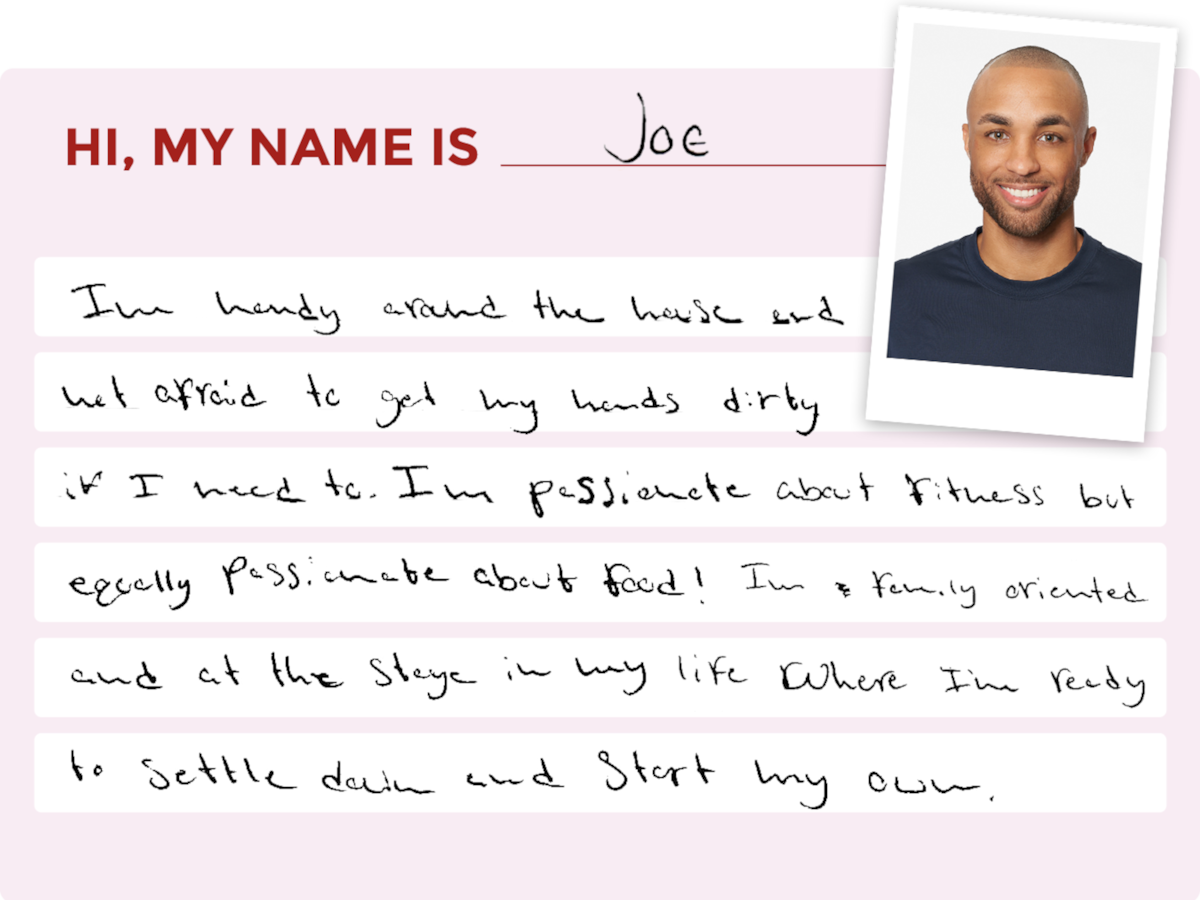 HI, MY NAME IS Joe
I'm handy around the house and
not afraid to get my hands dirty
if I need to. I'm passionate about fitness but
equally passionate about food! I'm family oriented
and at the stage in my life where I'm ready
to settle down and start my own.